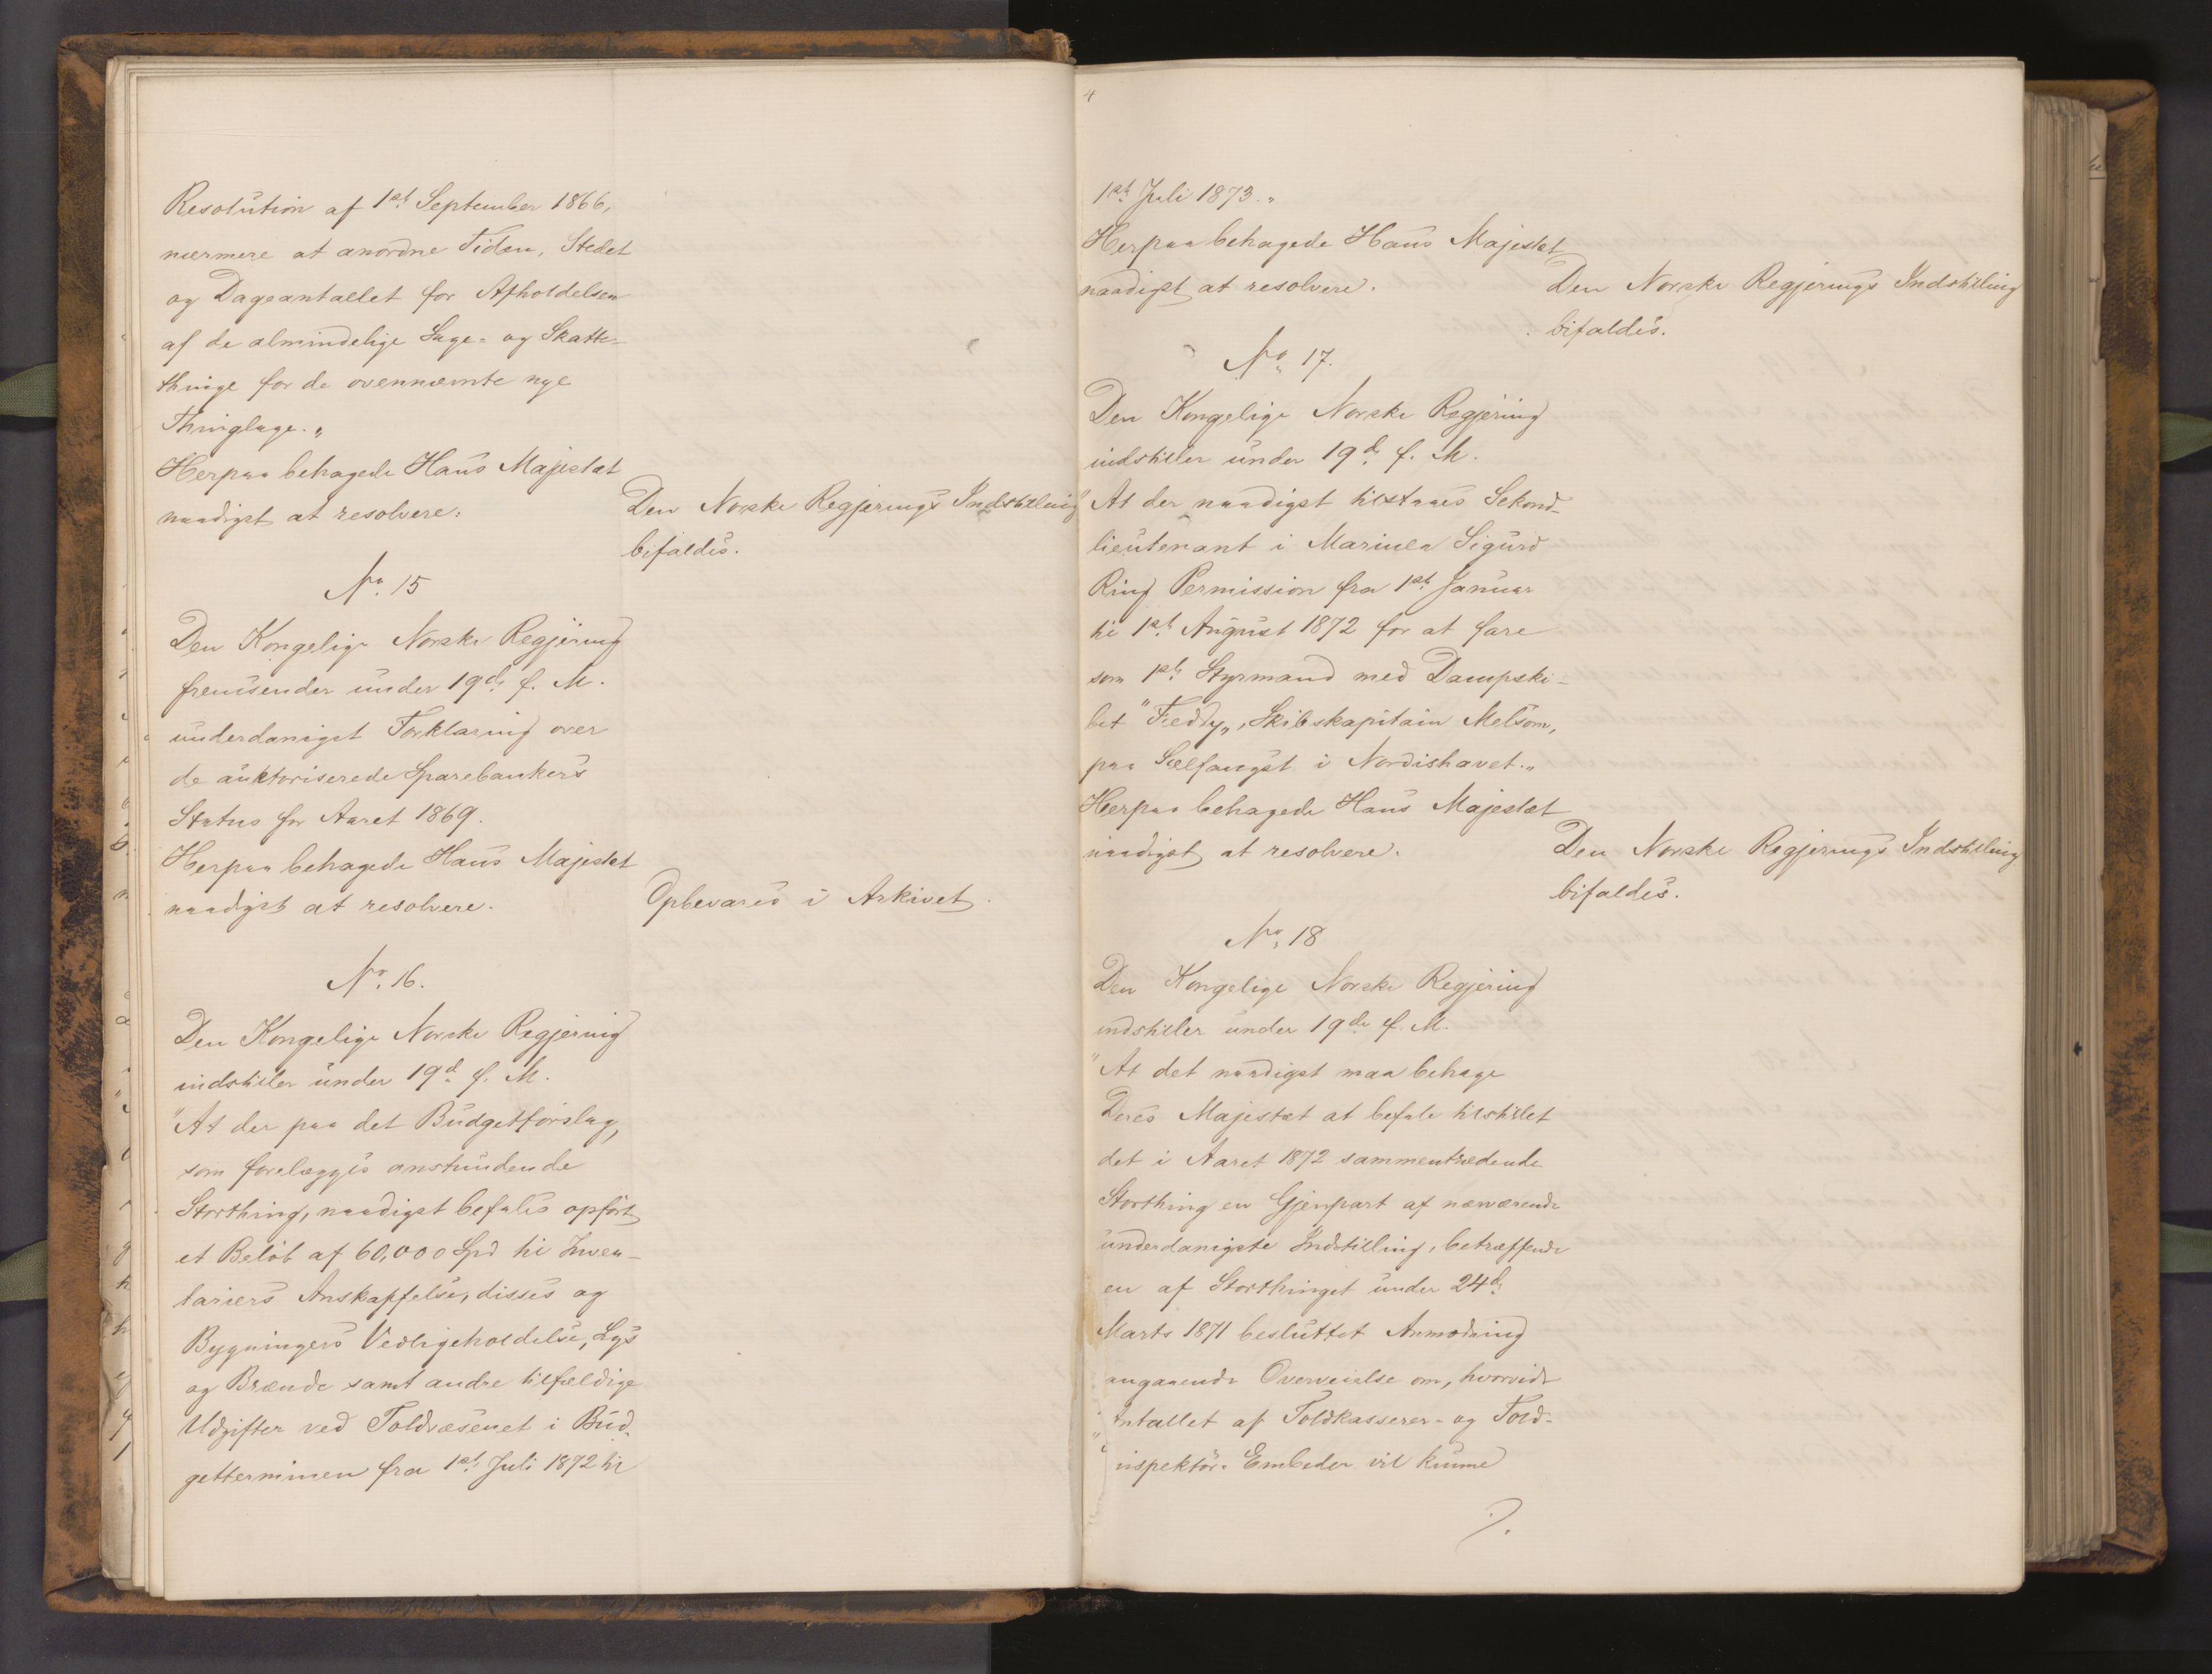 Resolution af 1ste September 1866,
nærmere at anordne Tiden, Stedet
og Dageantallet for Afholdelsen
af de almindelige Sage- og Skatte-
thinge for de ovennævnte nye
Thinglage.„
Herpaa behagede Hans Majestæt
naadigst at resolvere:
Den Norske Regjerings Indstilling
bifaldes.
No. 15
Den Kongelige Norske Regjering
fremsender under 19de f. M.
underdanigst Forklaring over
de auktoriserede Sparebankers
Status for Aaret 1869.
Herpaa behagede Hans Majestæt
naadigst at resolvere.
Opbevares i Arkivet.
No. 16.
Den Kongelige Norske Regjering
indstiller under 19de f. M.
"At der paa det Budgetforslag,
som forelægges anstundende
Storthing, naadigst befales opført
et Beløb af 60,000 Spd til Inven-
tariers Anskaffelse, disses og
Bygningers Vedligeholdelse, Lys
og Brænde samt andre tilfældige
Udgifter ved Toldvæsenet i Bud-
getterminen fra 1ste Juli 1872 til
4
1ste Juli 1873.„
Herpaa behagede Hans Majestæt
naadigst at resolvere.
Den Norske Regjerings Indstilling
bifaldes.
No. 17.
Den Kongelige Norske Regjering
indstiller under 19de f. M.
"At der naadigst tilstaaes Sekond-
lieutenant i Marinen Sigurd
Ring Permission fra 1ste Januar
til 1ste August 1872 for at fare
som 1ste Styrmand med Dampski-
bet "Fæddy„, Skibskapitain Melsom,
paa Sælfangst i Nordishavet.„
Herpaa behagede Hans Majestæt
naadigst at resolvere.
Den Norske Regjerings Indstilling
bifaldes.
No. 18
Den Kongelige Norske Regjering
indstiller under 19de f. M.
"At det naadigst maa behage
Deres Majestæt at befale tilstillet
det i Aaret 1872 sammentrædende
Storthing en Gjenpart af nærværende
underdanigste Indstilling, betræffende
en af Storthinget under 24de
Marts 1871 besluttet Anmodning
angaaende Overveielse om, hvorvidt
Antallet af Toldkasserer- og Told-
inspektør-Embeder vil kunne